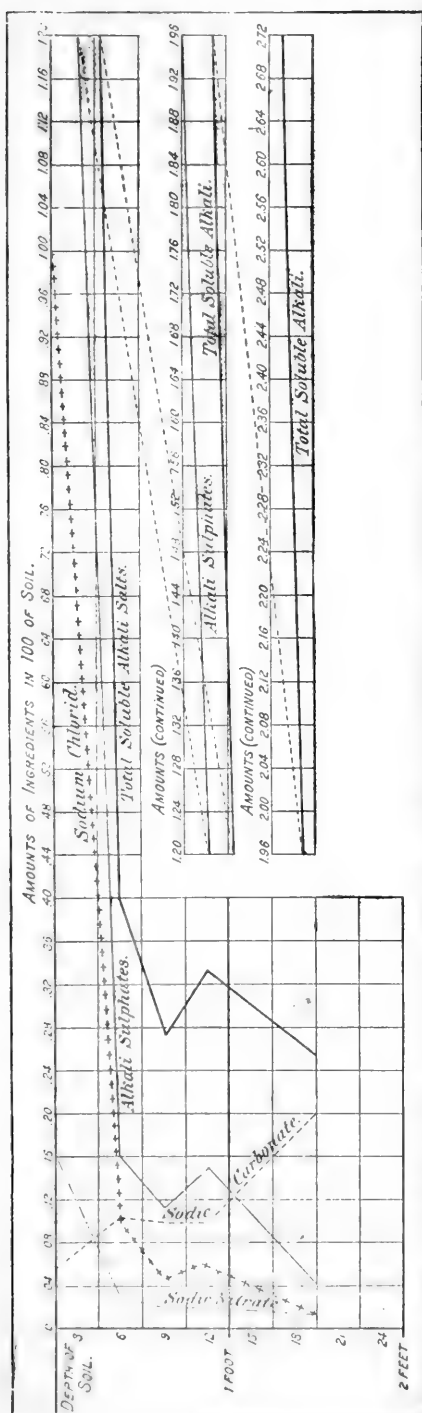 AMOUNTS OF INGREDIENTS IN 100 OF SOIL.
0 .04 .08 .12 .16 .20 .24 .28 .32 .36 .40 .44 .48 .52 .56 .60 .64 .68 .72 .76 .80 .84 .88 .92 .96 1.00 1.04 1.08 1.12 1.16 1.20
DEPTH OF SOIL.
3
6
9
12
1 FOOT
15
18
21
24
2 FEET
Sodium Chlorid.
Total Soluble Alkali Salts.
Alkali Sulphates.
Sodic Carbonate
Sodic Nitrate
AMOUNTS (CONTINUED)
1.20 1.24 1.28 1.32 1.36 1.40 1.44 1.48 1.52 1.56 1.60 1.64 1.68 1.72 1.76 1.80 1.84 1.88 1.92 1.96
Alkali Sulphates.
Total Soluble Alkali.
AMOUNTS (CONTINUED)
1.96 2.00 2.04 2.08 2.12 2.16 2.20 2.24 2.28 2.32 2.36 2.40 2.44 2.48 2.52 2.56 2.60 2.64 2.68 2.72
Total Soluble Alkali.